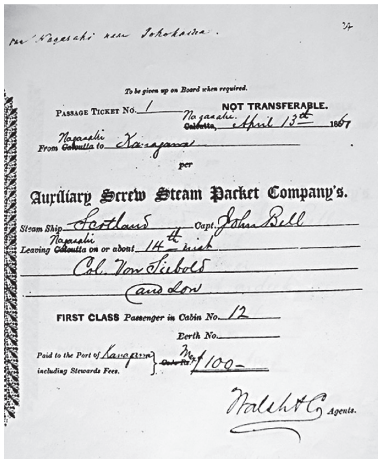 von Nagasaki nach Jokohama.
To be given up on Board when required.
PASSAGE TICKET No. 1 NOT TRANSFERABLE.
Nagasaki
Calcutta, April 13th 1861
Nagasaki
From Calcutta to Kanagawa
per
Auxiliary Screw Steam Packet Company's.
Steam Ship Scotland Capt. John Bell
Nagasaki
Leaving Calcutta on or about 14th inst
Col. Von Siebold
and Son
FIRST CLASS Passenger in Cabin No. 12
Berth No.
Paid to the Port of Kanagawa
including Stewards Fees. $100-
Walsh & Co Agents.